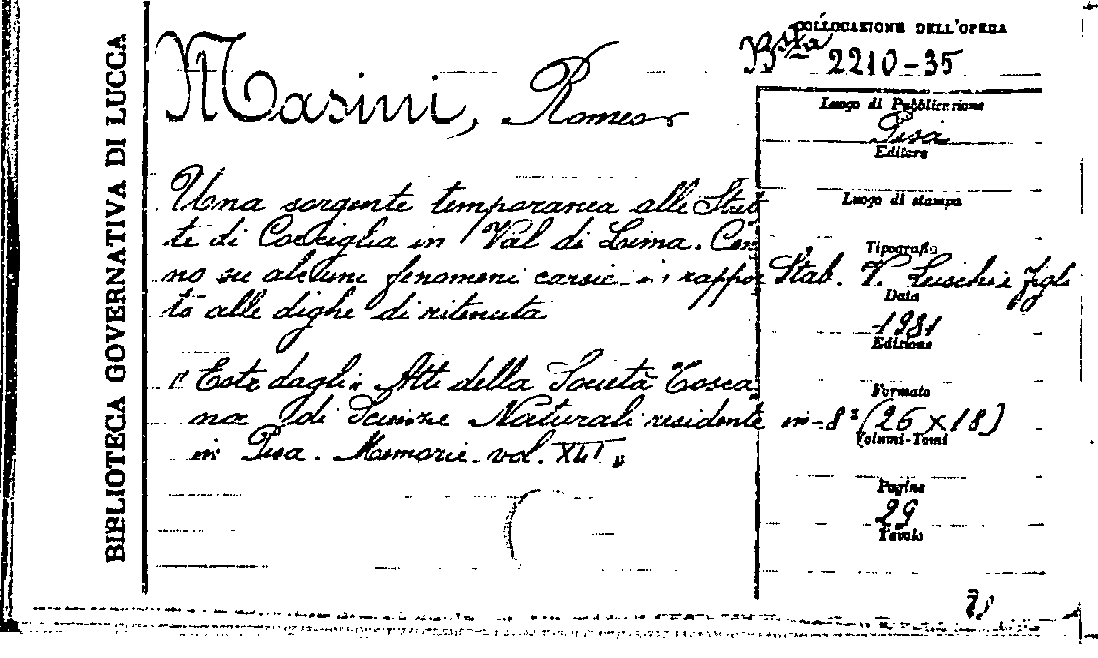 BIBLIOTECA GOVERNATIVA DI LUCCA
COLLOCAZIONE DELL'OPERA
Bsta 2210-35
Masini, Romeo
Una sorgente temporanea alle Stret
te di Cocciglia in Val di Lima. Cen
no su alcuni fenomeni carsici in rappor
to alle dighe di ritenuta
"Estr. dagli" Atti della Società Tosca
na di Scienze Naturali residente
in Pisa. Memorie vol. XLI"
Luogo di Pubblicazione
Pisa
Editore
Luogo di stampa
Tipografia
Stab. V. Lischi e figli
Data
1931
Edizione
Formato
in-8° (26 x 18)
Volumi-Tomi
Pagine
29
Tavole